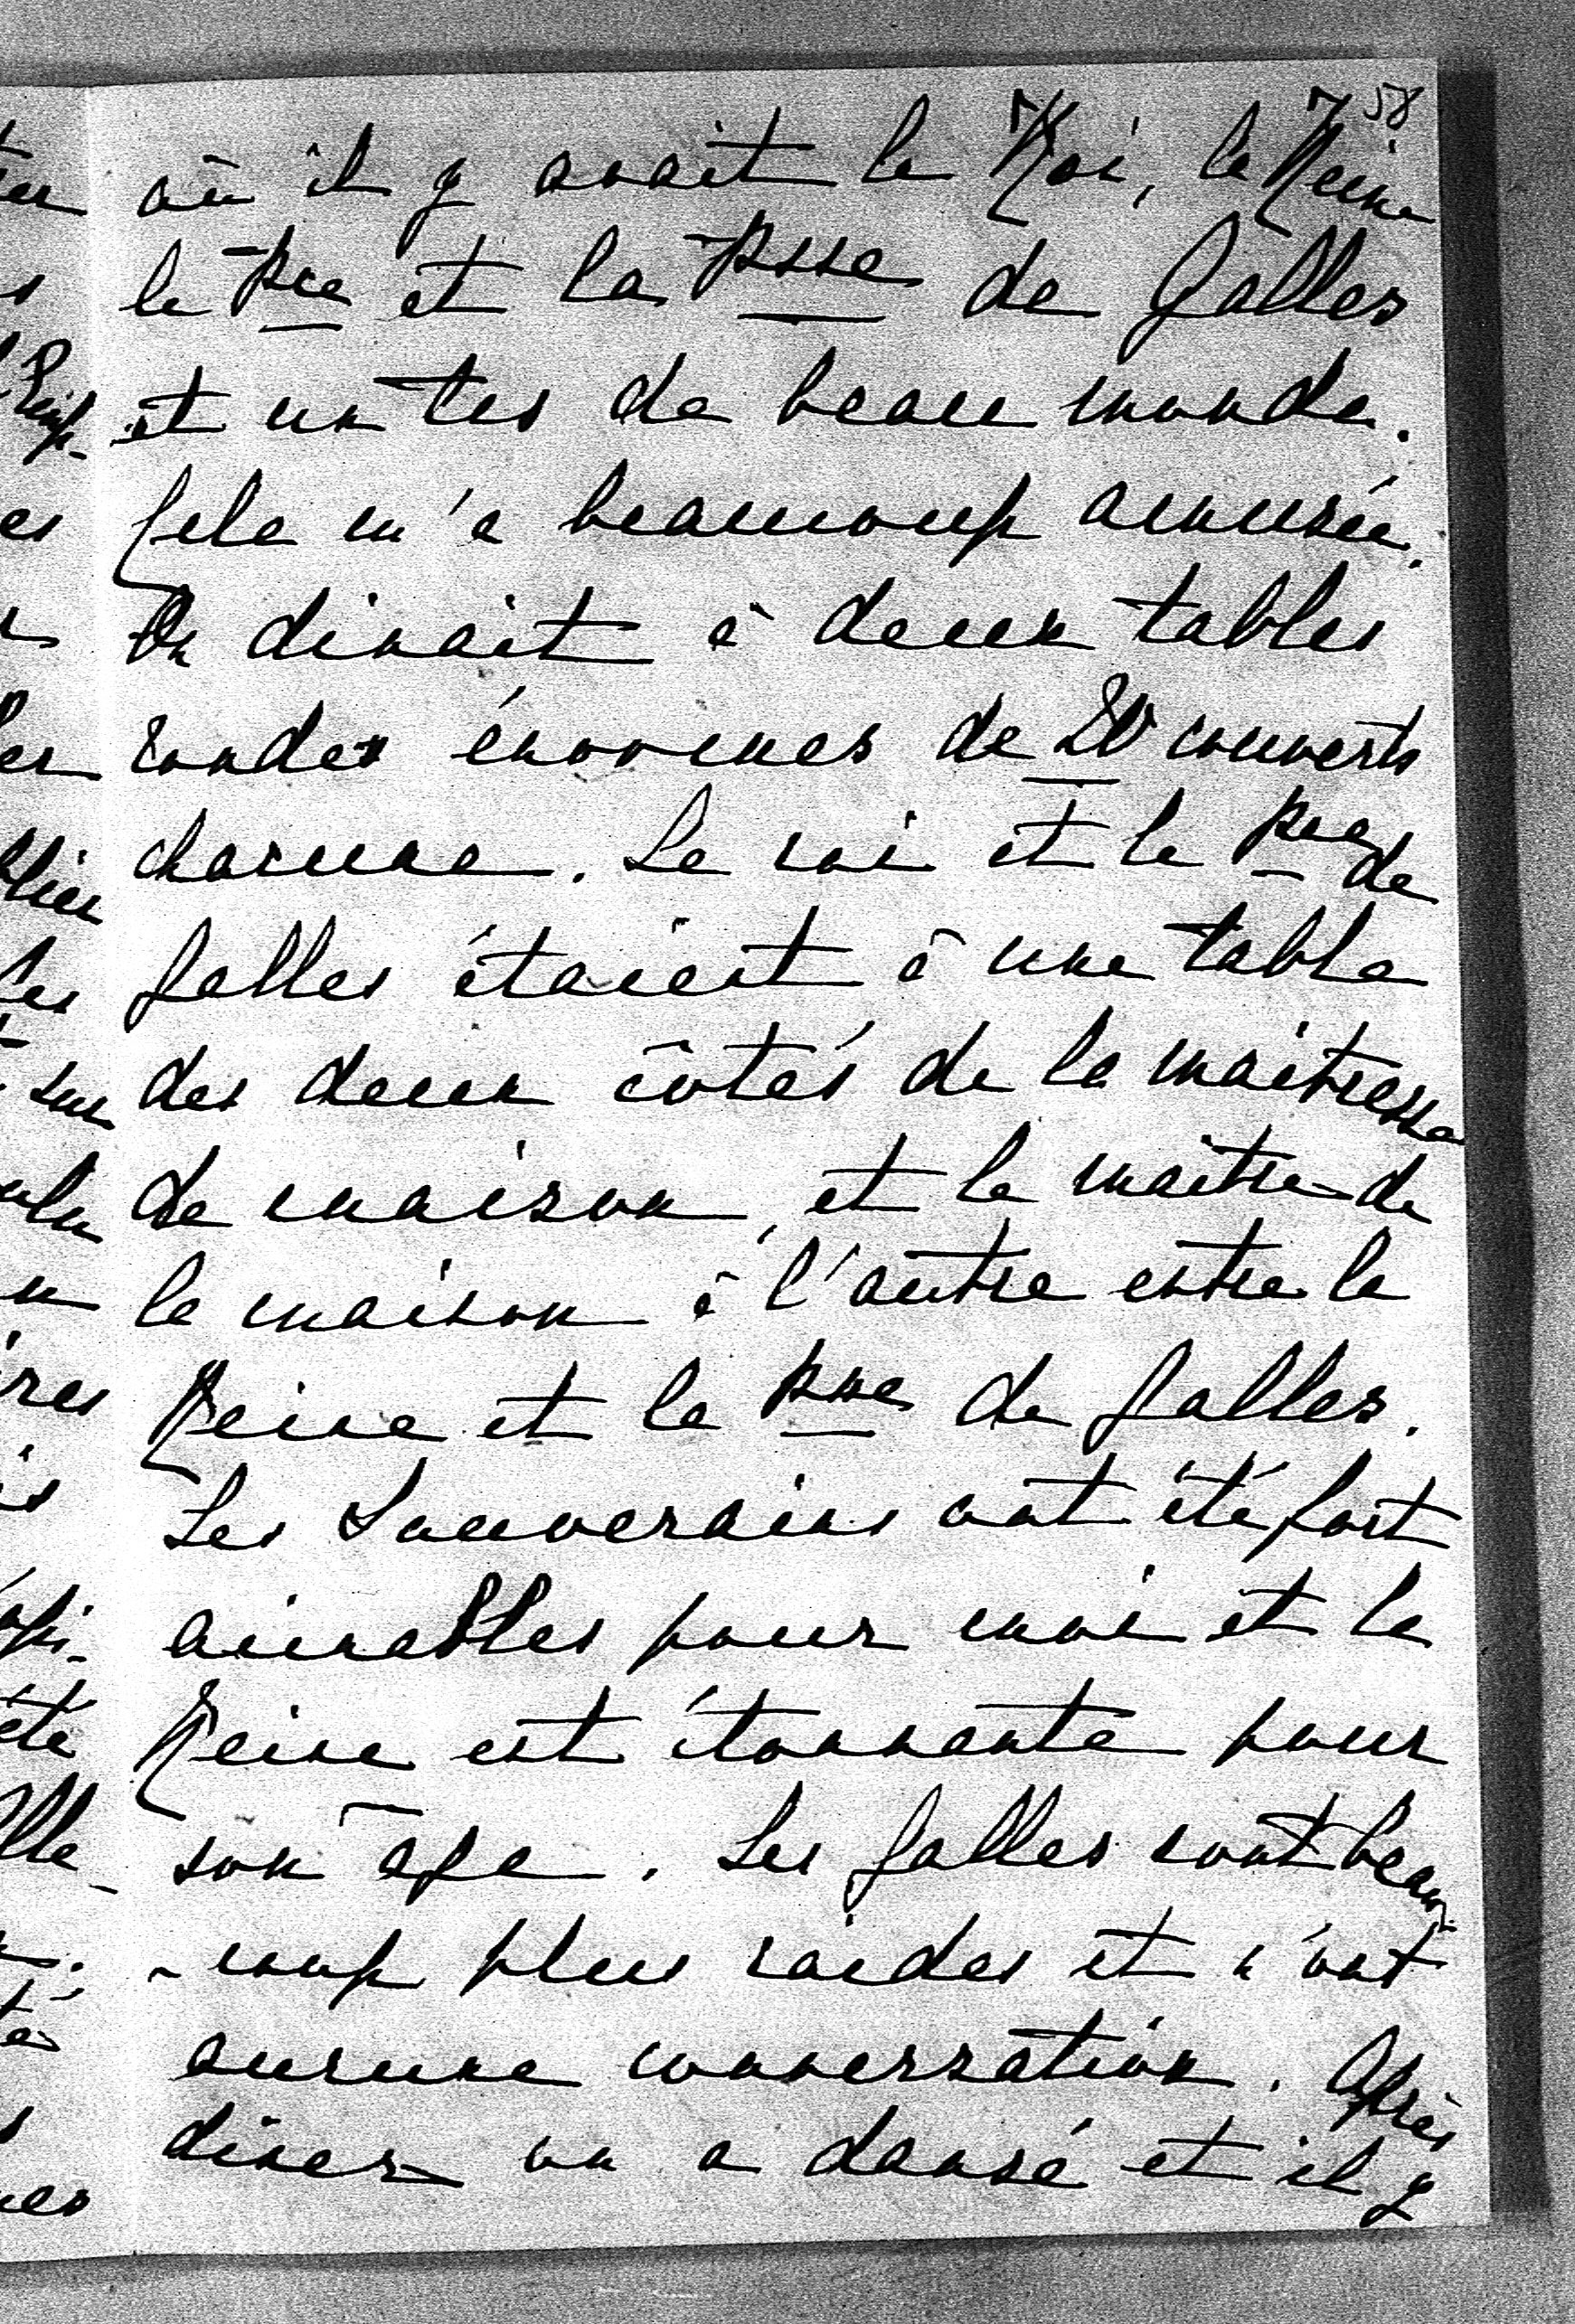 58
où il y avait le Roi, la Reine
le Pce et la Psse de Galles
et un tas de beau monde.
Cela m'a beaucoup amusée.
On dinait à deux tables
rondes énormes de 20 couverts
chacune. Le roi et le Pce de
Galles étaient à une table
des deux côtés de la maitresse
de maison, et le maître de
la maison à l'autre entre la
Reine et la Psse de Galles.
Les Souverains ont été fort
aimables pour moi et la
Reine est étonnante pour
son âge. Les Galles sont beau-
-coup plus raides et n'ont
aucune conversation. Après
diner on a dansé et il y